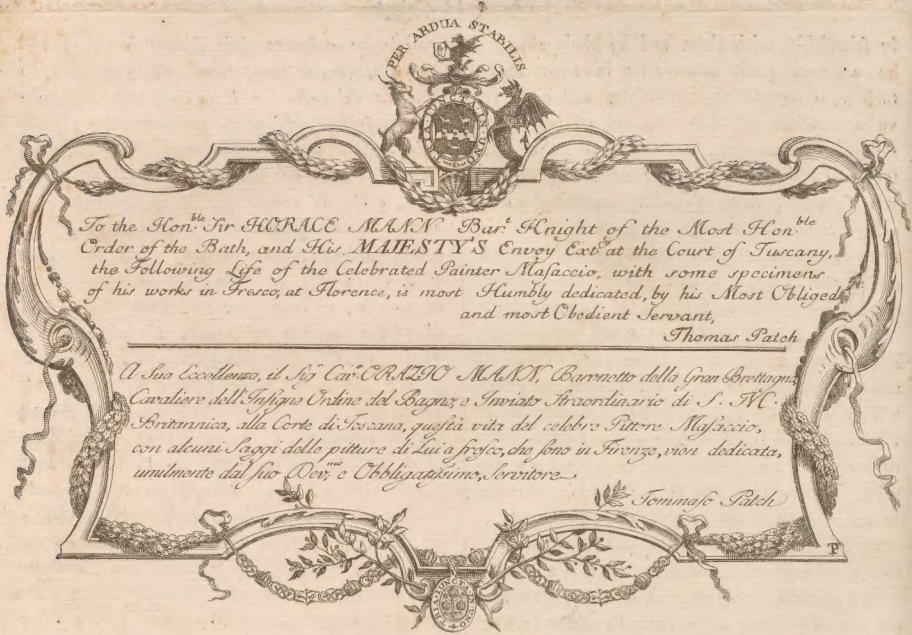 PER ARDUA STABILIS
To the Hon.ble Sir HORACE MANN Bar.t Knight of the Most Hon.ble
Order of the Bath, and His MAJESTY'S Envoy Ext.y at the Court of Tuscany,
the Following Life of the Celebrated Painter Masaccio, with some specimens
of his works in Fresco, at Florence, is most Humbly dedicated, by his Most Obliged
and most Obedient Servant,
Thomas Patch
A Sua Eccellenza, il Sig.r Cav.r ORAZIO MANN, Baronetto della Gran Brettagna,
Cavaliere dell'Insigne Ordine del Bagno, e Inviato Straordinario di S. M.
Britannica, alla Corte di Toscana, questa vita del celebre Pittore Masaccio,
con alcuni Saggi delle pitture di Lui a fresco, che sono in Firenze, vien dedicata,
umilmente dal suo Dev.mo e Obbligatissimo, Servitore
Tommaso Patch
TP
TRIA IUNCTA IN UNO